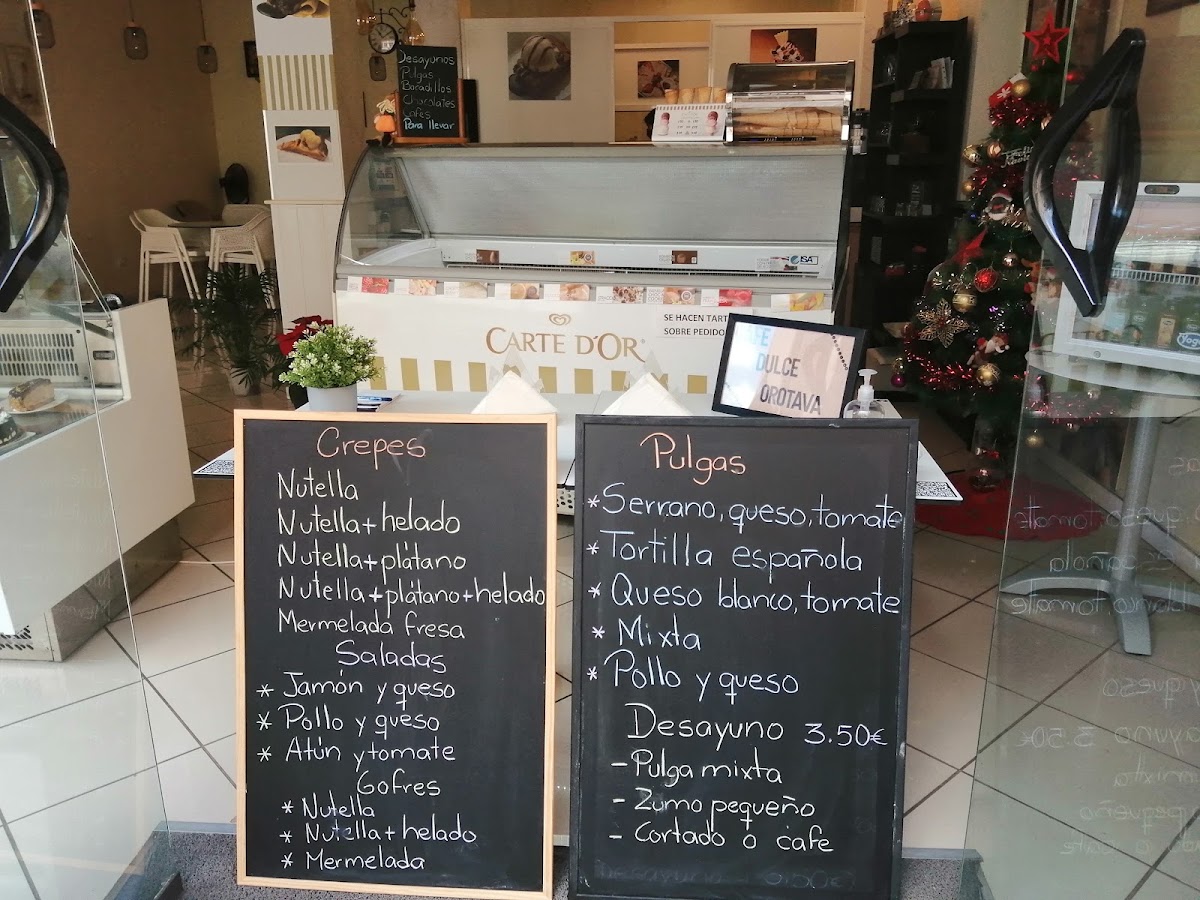 Desayunos
Pulgas
Bocadillos
Chocolates
Cafés
Para llevar
ISA
SE HACEN TART
SOBRE PEDIDO
CARTE D'OR
DULCE
OROTAVA
Crepes
Nutella
Nutella + helado
Nutella + plátano
Nutella + plátano + helado
Mermelada fresa
Saladas
* Jamón y queso
* Pollo y queso
* Atún y tomate
Gofres
* Nutella
* Nutella + helado
* Mermelada
Pulgas
* Serrano, queso, tomate
* Tortilla española
* Queso blanco, tomate
* Mixta
* Pollo y queso
Desayuno 3.50€
- Pulga mixta
- Zumo pequeño
- Cortado o cafe